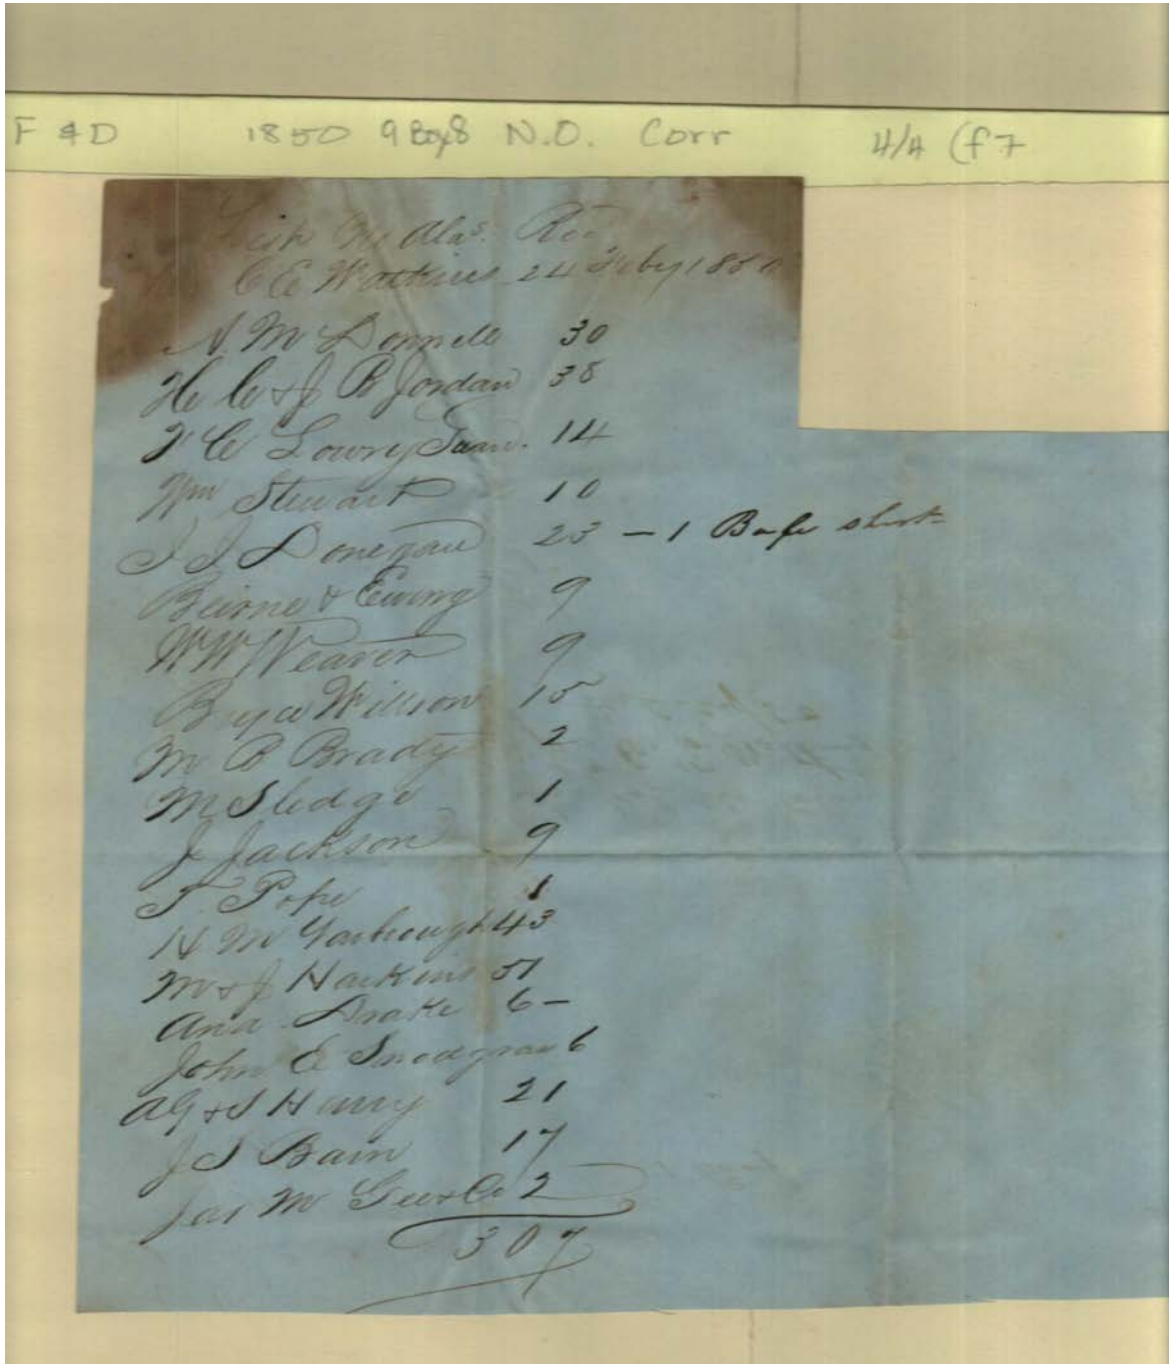 F & D 1850 9 Box8 N.O. Corr 4/4 (f7
Alas. Recd
C E Watkins 24 Feby 1850
N. M Donnell 30
H C & J B Jordan 38
Lowry Guard. 14
Wm Stewart 10
J J Donegan 23 – 1 Bale short
Beirne & Ewing 9
W W Weaver 9
Bryce Willson 15
M B Brady 2
M Sledge 1
J Jackson 9
T. Pope 1
H M Yarbrough 43
M & J Harkins 51
Ann Drake 6 –
John E Snodgrass 6
A G & S Henry 21
J S Bain 17
Jas M Gee & Co 2
307